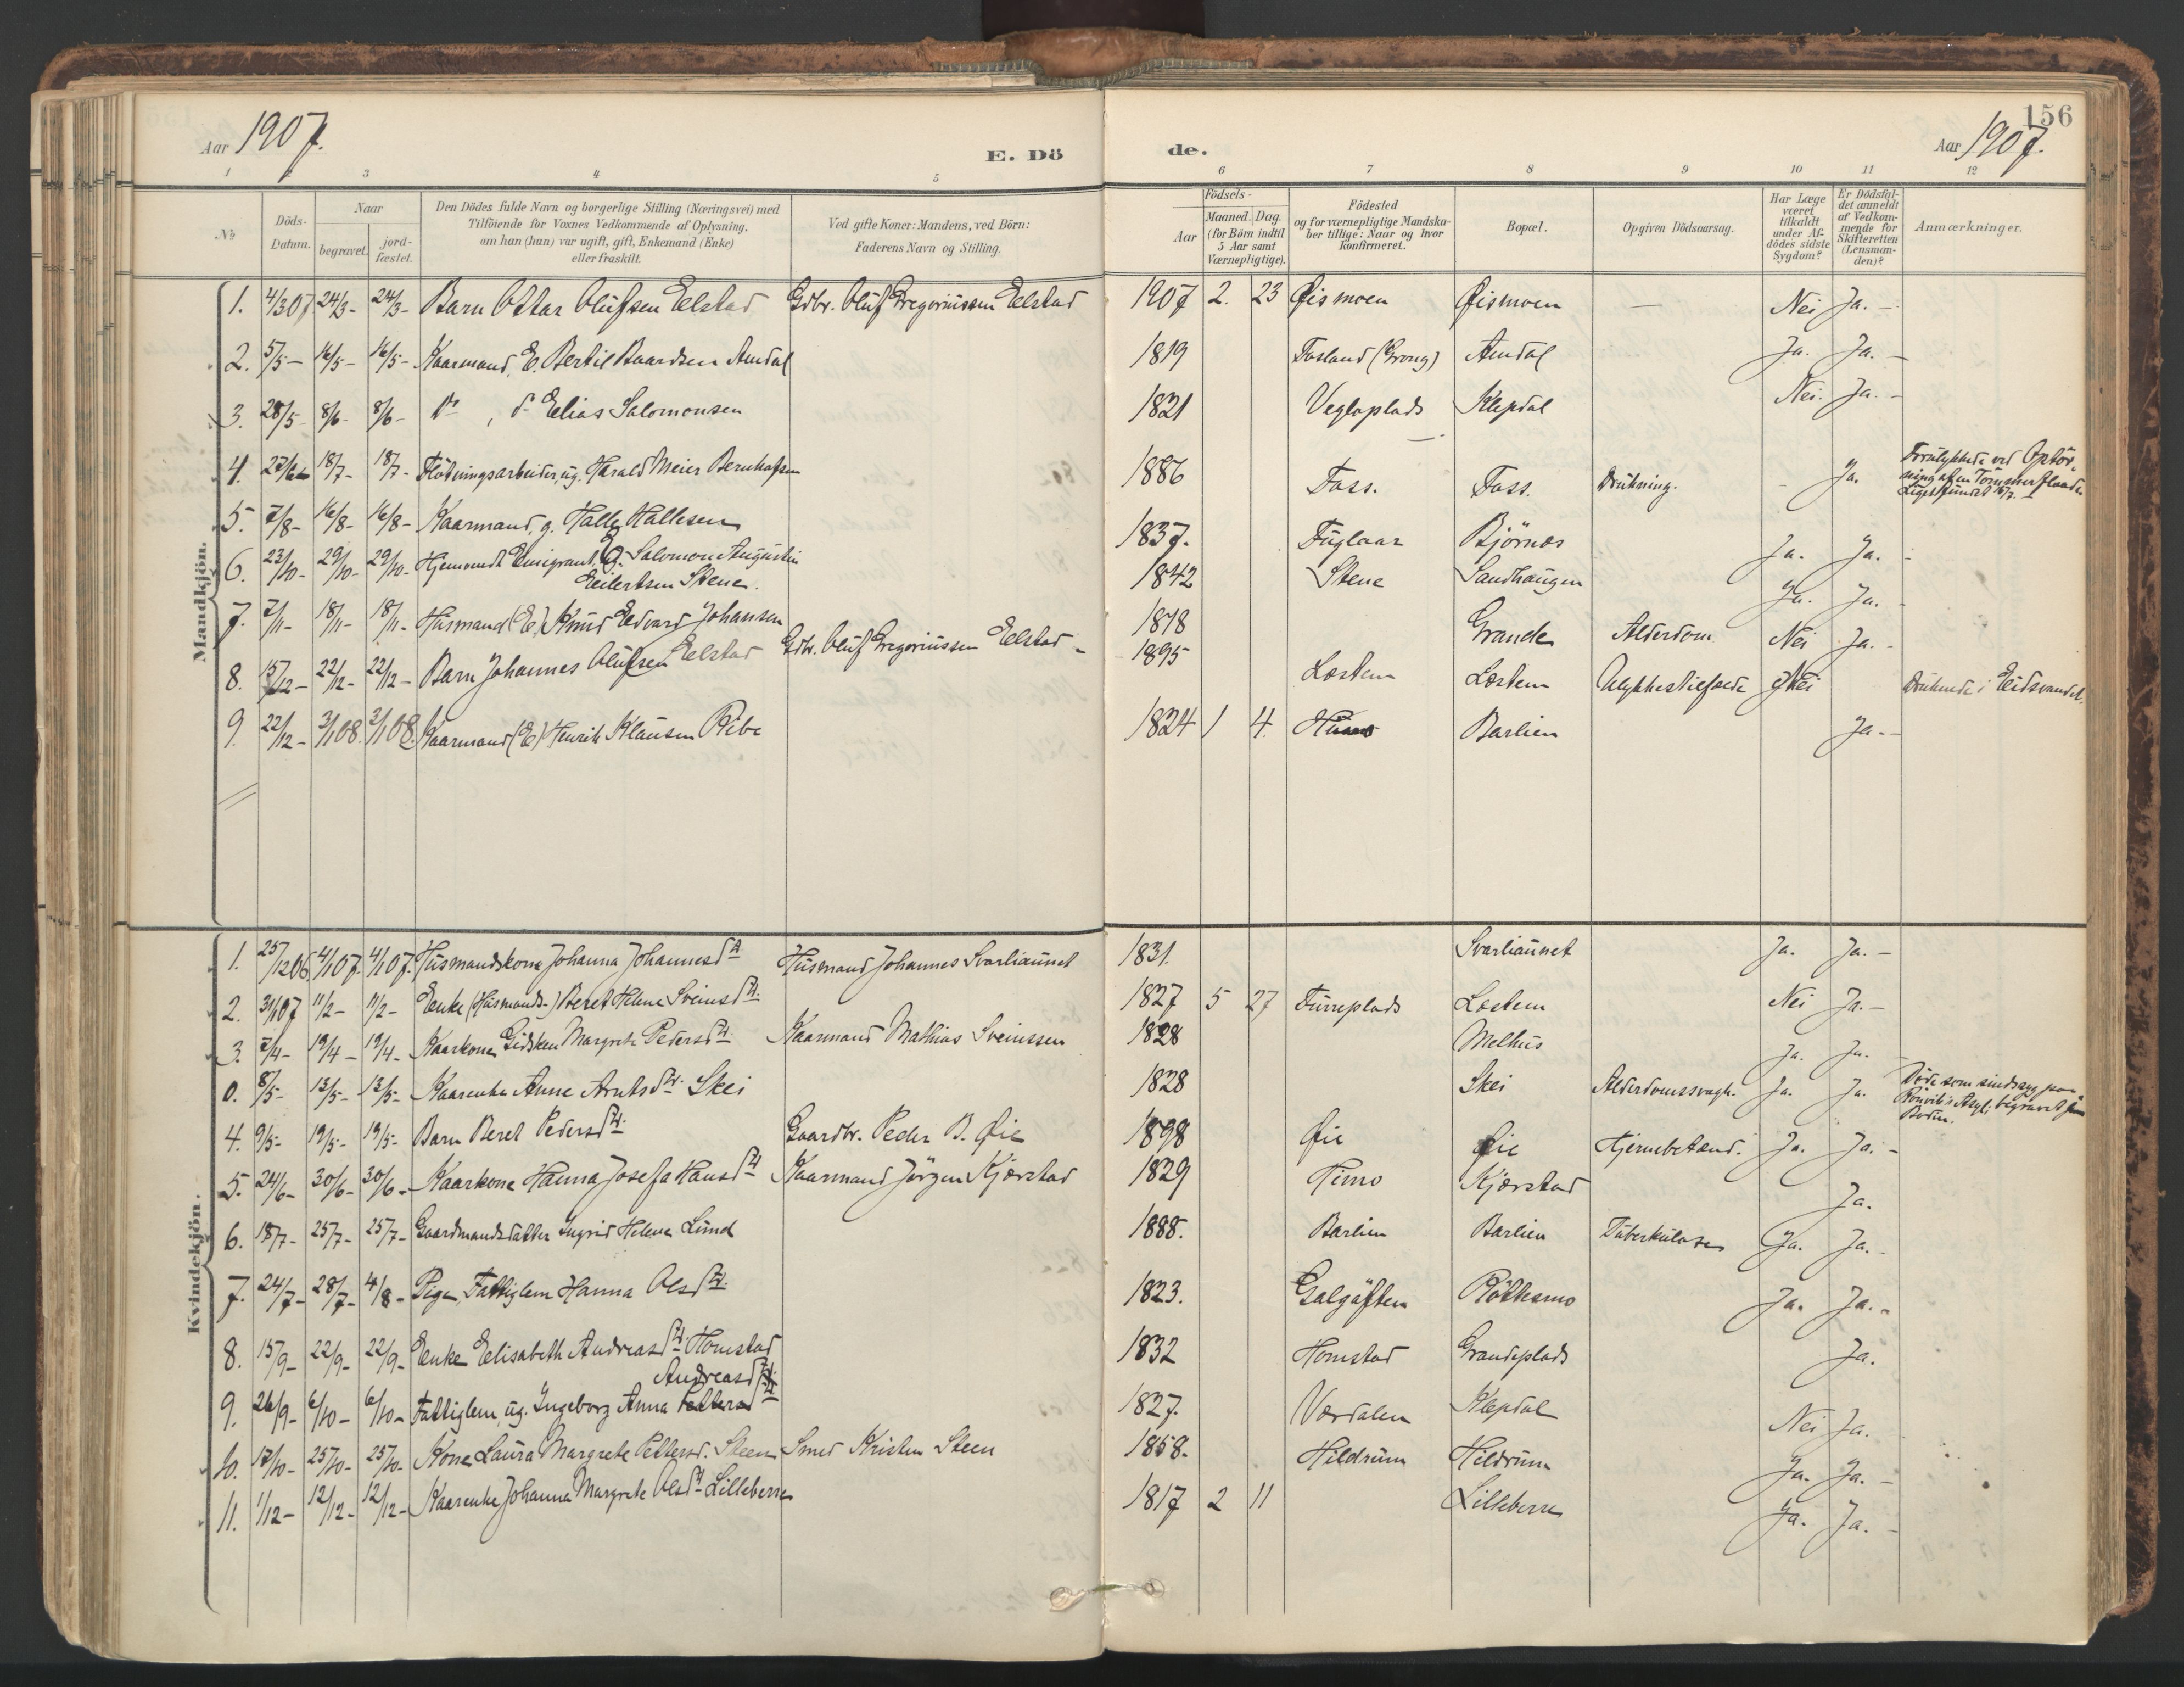 156
Aar 1907.
E. Dö
de.
Aar 1907.
1 3 4 5 6 7 8 9 10 11 12
No
Döds-Datum.
Naar
begravet.
jord-fæstet.
Den Dödes fulde Navn og borgerlige Stilling (Næringsvei) med
Tilföiende for Voxnes Vedkommende af Oplysning,
om han (hun) var ugift, gift, Enkemand (Enke)
eller fraskilt.
Ved gifte Koner: Mandens, ved Börn:
Faderens Navn og Stilling.
Födsels-
Aar
Maaned. Dag.
(for Börn indtil
5 Aar samt
Værnepligtige).
Födested
og for værnepligtige Mandska-
ber tillige: Naar og hvor
konfirmeret.
Bopæl.
Opgiven Dödsaarsag.
Har Læge
været
tilkaldt
under Af-
dödes sidste
Sygdom?
Er Dödsfal-
det anmeldt
af Vedkom-
mende for
Skifteretten
(Lensman-
den)?
Anmærkninger.
Mandkjön.
1. 4/3 07 24/3- 24/3- Barn Ottar Olufsen Elstad Gdbr. Oluf Gregoriussen Elstad 1907 2. 23 Øismoen Øismoen — Nei Ja. -
2. 5/5- 16/5- 16/5- Kaarmand, E. Bertil Baardsen Amdal 1819 Fosland (Grong) Amdal Ja. Ja. -
3. 28/5- 8/6- 8/6- Do, do Elias Salomonsen 1821 Veglaplads Klepdal Nei. Ja. -
4. 27/6- 18/7- 18/7- Flødningsarbeider, ug. Harald Meier Bernhofsen 1886 Foss. Foss. Drukning. - Ja. Forulykkede ved Optør-
ning af en Tømmerflaade.
Liget fundet
5. 7/8- 16/8- 16/8- Kaarmand, g. Halle Hallesen 1837. Fuglaar Bjørnes Ja. Ja. -
6. 23/10- 29/10- 29/10- Hjemvendt Emigrant, g. Salomon Augustin
Eilertsen Stene. 1842 Stene Sandhaugen Ja. Ja. -
7. 7/11- 18/11- 18/11- Husmand (E) Knud Edvard Johansen 1818 Grande Alderdom Nei Ja. -
8. 15/12- 22/12- 22/12- Barn Johannes Olufsen Elstad Gdb. Oluf Gregoriussen Elstad - 1895 Løstem Løstem Ulykkestilfælde Nei Druknede i Eidsvandet.
9. 22/12- 3/1 08. 3/1 08. Kaarmand (E) Henrik Klausen Ribe 1824 1 4. Barlien Ja. -
Kvindekjön.
1. 25/12 06 4/1 07. 4/1 07. Husmandskone Johanna Johannesdt Husmand Johannes Svarliaunet 1831. Svarliaunet Ja. Ja. -
2. 31/1 07 11/2- 11/2- Enke (Husmands-) Beret Helene Sveinsdt. 1827 5 27 Furreplads Løstem Nei Ja. -
3. 7/4- 19/4- 19/4- Kaarkone Gidsken Margrete Pedersdt. Kaarmand Mathias Sveinssen 1828 Melhus Ja. Ja. -
0. 8/5- 13/5- 13/5- Kaarenke Anne Arntsdt. Skei 1828 Skei Alderdomssvagh. Ja. Ja. Døde som sindssyg paa
Rönvik's Asyl; begravet fra
Bodin.
4. 9/5- 19/5- 19/5- Barn Beret Pedersdt. Gaardbr. Peder B. Øie 1898 Øie Øie Hjernebetænd. Ja. Ja. -
5. 24/6- 30/6- 30/6- Kaarkone Hanna Josefa Hansdt Kaarmand Jørgen Kjørstad 1829 Himo Kjørstad Ja.
6. 18/7- 25/7- 25/7- Gaardmandsdatter Ingrid Helene Lund 1888. Barlien Barlien Tuberkulose Ja. Ja. -
7. 24/7- 28/7- 4/8- Pige, Fattiglem Hanna Olsdt. 1823. Galgäften Röttesmo Ja. Ja. -
8. 15/9- 22/9- 22/9- Enke Elisabeth Andreasdt. Homstad 1832 Homstad Grandeplads Ja.
Andreasdt.
9. 26/9- 6/10- 6/10- Fattiglem, ug. Ingeborg Anna 1827. Værdalen Klepdal Nei Ja.
10. 17/10- 25/10- 25/10- Kone Laura Margrete Pettersd. Steen Smed Kristen Steen 1858. Hildrum Hildrum Ja. Ja. -
11. 1/12- 12/12- 12/12- Kaarenke Johanna Margrete Olsdt. Lilleberre 1817 2 11 Lilleberre Ja. Ja. -